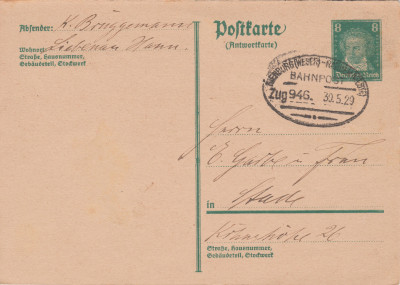 Absender: K. Brüggemann
Liebenau Hann.
Wohnort,
Straße, Hausnummer,
Gebäudeteil, Stockwerk
Postkarte
(Antwortkarte)
8 8
Deutsches Reich
BAHNPOST
Zug 946. 30.5.29
Herrn
E. Gathe u Frau
in Stade
26
Straße, Hausnummer,
Gebäudeteil, Stockwerk